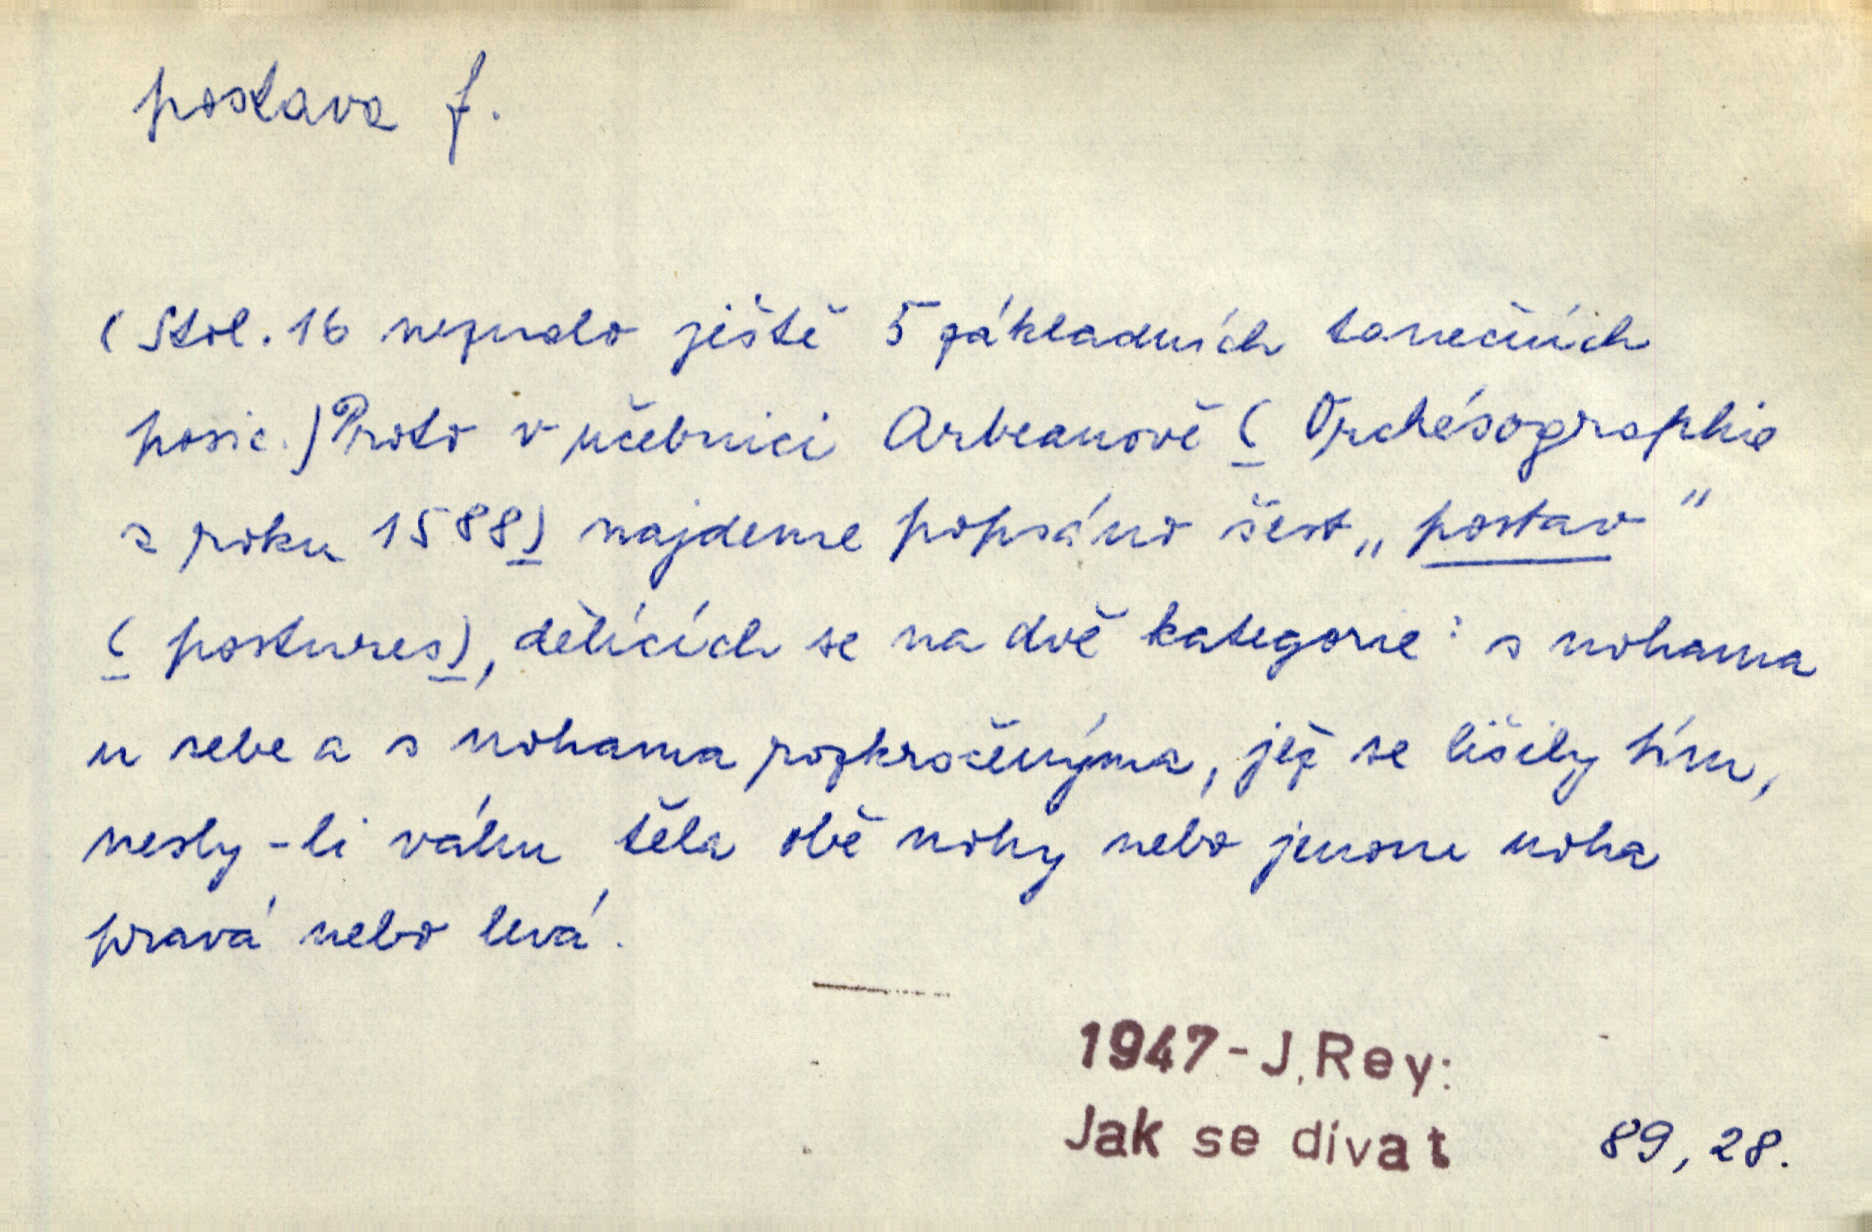 postava f.
(Stol. 16 neznalo ještě 5 základních tanečních
posic.) Proto v učebnici Arbeanově (Orchésographie
z roku 1588) najdeme popsáno šest „postav"
(postures), dělících se na dvě kategorie: s nohama
u sebe a s nohama rozkročenýma, jež se lišily tím,
nesly-li váhu těla obě nohy nebo jenom noha
pravá nebo levá.
1947-J.Rey:
Jak se dívat 89, 28.